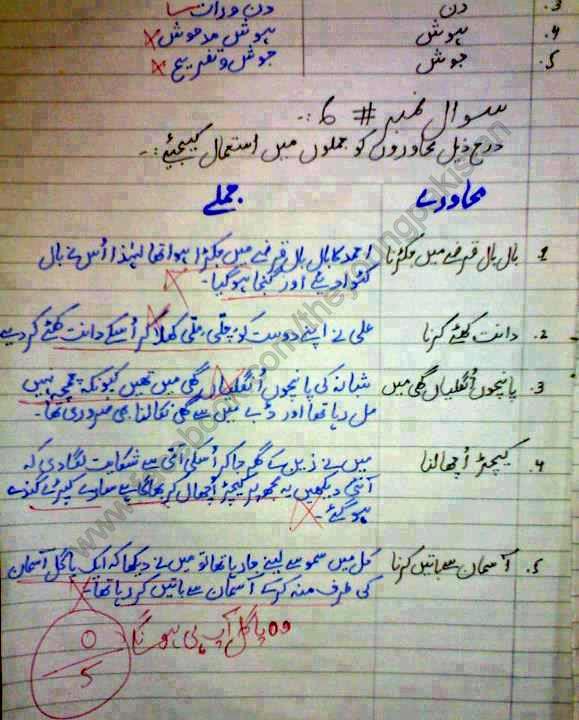 3. دن دن ورات
4. ہوش ہوش مدہوش
5. جوش جوش و تفریح
سوال نمبر # 6 :-
درج ذیل محاوروں کو جملوں میں استعمال کیجیئے :-
محاورے جملے
1. بال بال قرضے میں جکڑنا احمد کا بال بال قرضے میں جکڑا ہوا تھا لہٰذا اُس نے بال
کٹوا دیئے اور گنجا ہوگیا۔
2. دانت کھٹے کرنا علی نے اپنے دوست کو چقی، ملی کھلا کر اُسکے دانت کھٹے کر دیے
3. پانچوں اُنگلیاں گھی میں شبانہ کی پانچوں اُنگلیاں گھی میں تھیں کیونکہ چمچی نہیں
مل رہا تھا اور ڈبے میں سے گھی نکالنا بھی ضروری تھا۔
4. کیچڑ اُچھالنا میں نے زین کے گھر جا کر اُسکی امّی سے شکایت لگا دی کہ
آنٹی دیکھیں یہ مجھ پر کیچڑ اُچھال کر بھاگا ہے سارے کپڑے گندے
ہو گئے۔
5. آسمان سے باتیں کرنا کل میں سموسے لینے جا رہا تھا تو میں نے دیکھا کہ ایک پاگل آسمان
کی طرف منہ کرکے آسمان سے باتیں کر رہا تھا۔
وہ پاگل آپ ہی ہونگے
0
5
www.facebook.com/theyoungpakistan